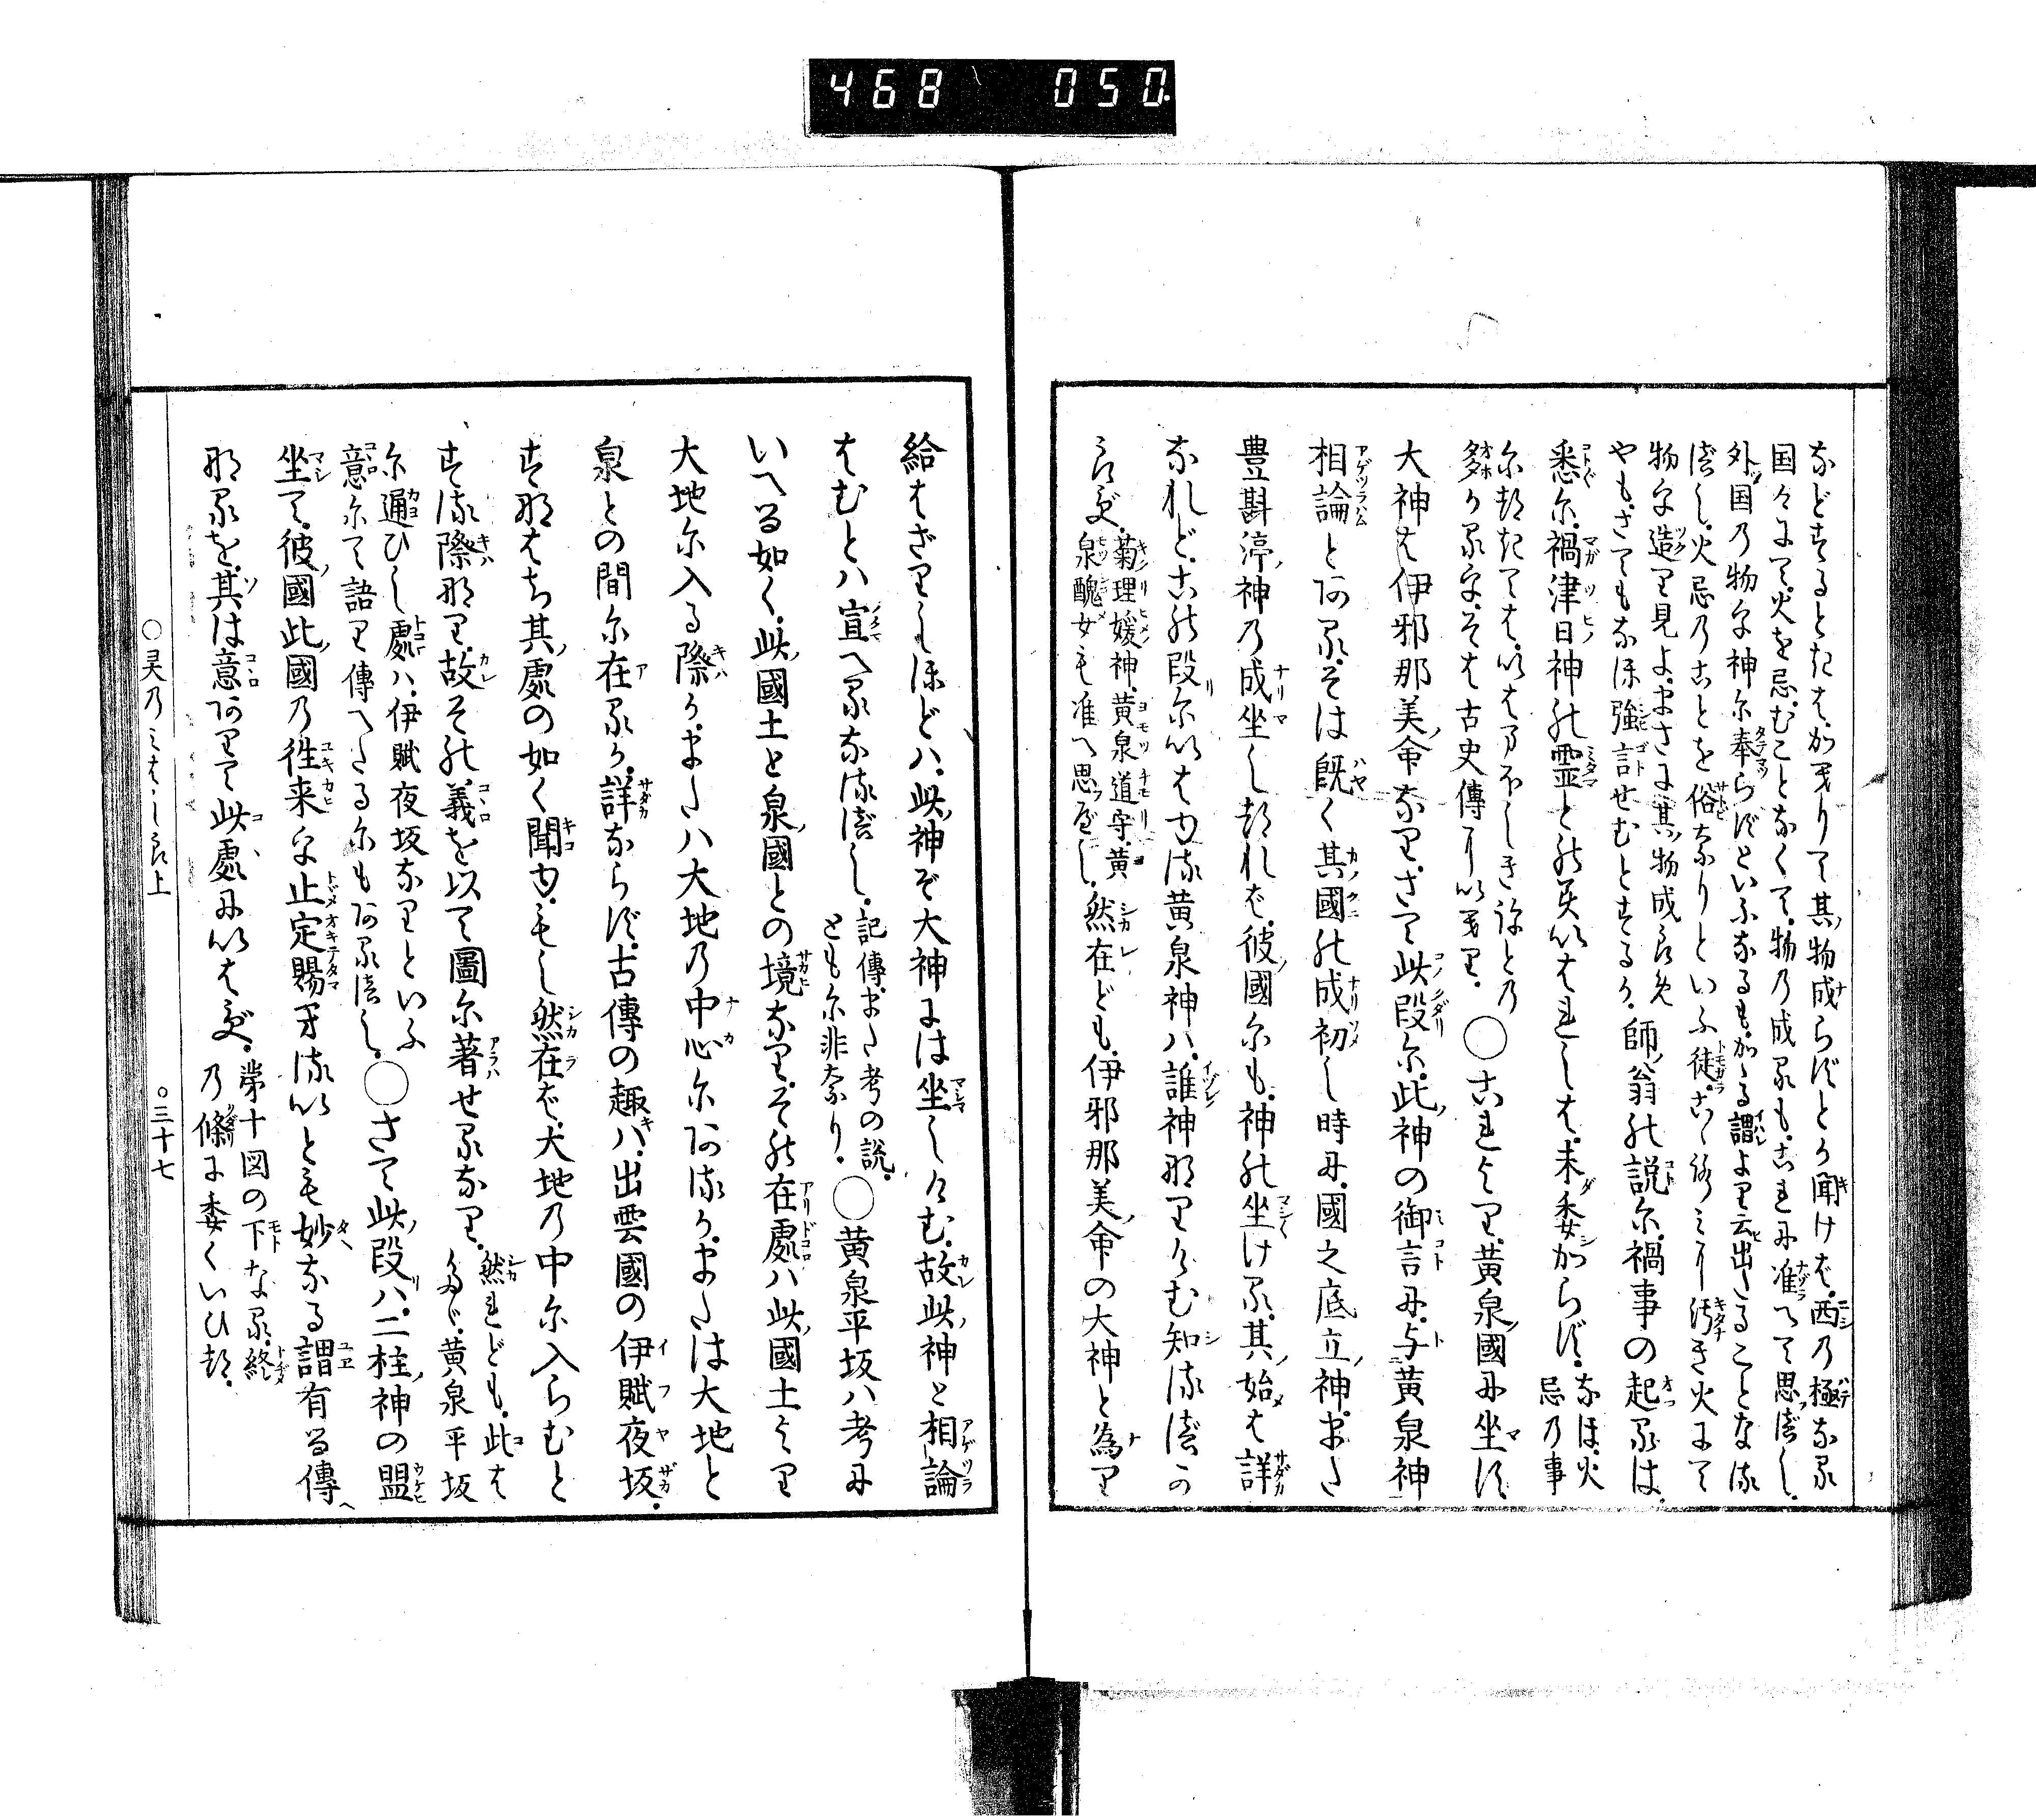 468 050
などするときは、かへりて其物成らずとか聞けば、西の極なる
国々にて、火を忌むことなくて、物の成るも、これに准へて思ふべし、
外国の物を神に奉らずといふなるも、かゝる謂より云出たることなる
べし、火忌のことを俗なりといふ徒、こゝろみに汚き火にて
物を造り見よ、まさに其物成らめ
やも、さてもなほ強言せむとするか、師翁の説に、禍事の起るは、
悉に、禍津日神の霊との云はれしは、未委からず、なほ火忌の事
多かるを、そは古史傳にいへり、○これより、黄泉國に坐す
大神は伊邪那美命なり、さて此段に、此神の御言に、与黄泉神
相論とある、そは既く其國の成初し時に、國之底立神、また
豊斟渟神の成坐しつれば、彼國にも、神の坐ける、其始は詳
なれど、この段にいはゆる黄泉神は、誰神なりけむ知るべか
らず、菊理媛神、黄泉道守、黄泉醜女も准へ思ふべし、然在ども、伊邪那美命の大神と為り
給はざりしほどは、此神ぞ大神には坐しけむ、故此神と相論
はむとは宣へるなるべし、記傳、また考の説、ともに非なり、○黄泉平坂は考に
いへる如く、此國土と泉國との境なり、その在處は此國土より
大地に入る際か、または大地の中心にあるか、または大地と
泉との間に在るか、詳ならず、古傳の趣は、出雲國の伊賦夜坂、
すなはち其處の如く聞ゆ、もし然在ば、大地の中に入らむと
する際なり、故その義を以て圖に著せるなり、然れども、此は たゞ、黄泉平坂
に通ひし處は、伊賦夜坂なりといふ
意にて語り傳へたるにもあるべし、○さて此段は、二柱神の盟
坐て、彼國此國の往来を止定賜へる、いとも妙なる謂有る傳
なるを、其は意ありて此處にいはず、第十図の下なる、終の條に委くいひつ、
○灵乃みはしら上
○三十七